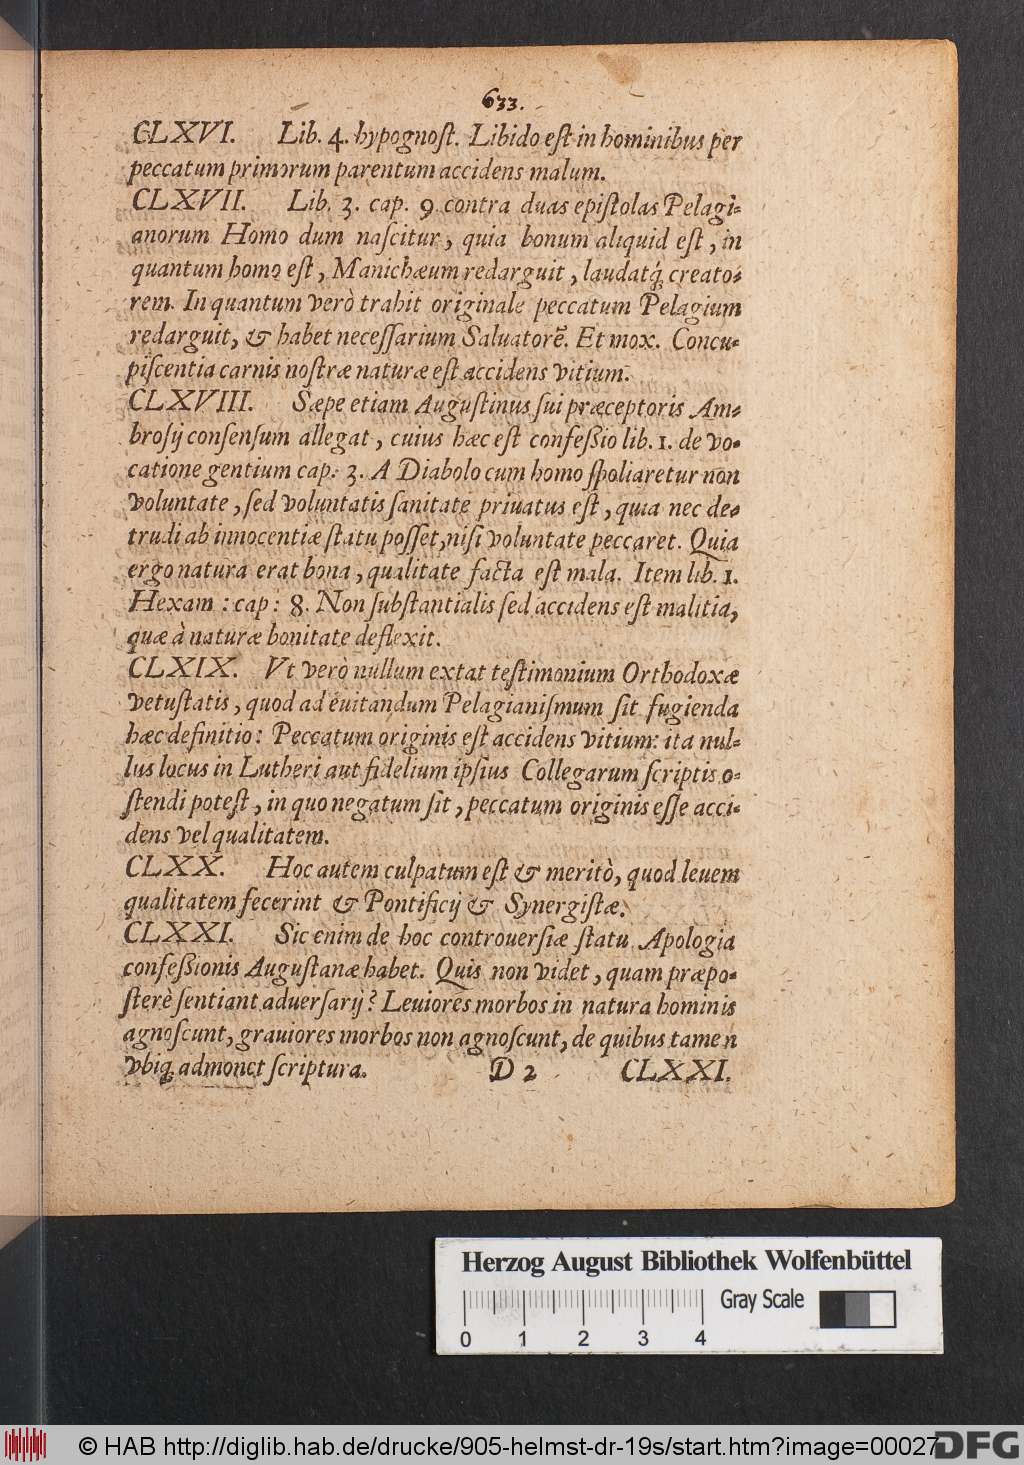 633.
CLXVI. Lib. 4. hypognoſt. Libido eſt in hominibus per
peccatum primorum parentum accidens malum.
CLXVII. Lib. 3. cap. 9. contra duas epiſtolas Pelagi-
anorum Homo dum naſcitur, quia bonum aliquid eſt, in
quantum homo eſt, Manichæum redarguit, laudatq́; creato-
rem. In quantum verò trahit originale peccatum Pelagium
redarguit, & habet neceſſarium Saluatorẽ. Et mox. Concu-
piſcentia carnis noſtræ naturæ eſt accidens vitium.
CLXVIII. Sæpe etiam Auguſtinus ſui præceptoris Am-
broſij conſenſum allegat, cuius hæc eſt confeßio lib. 1. de vo-
catione gentium cap. 3. A Diabolo cum homo ſpoliaretur non
voluntate, ſed voluntatis ſanitate priuatus eſt, quia nec de-
trudi ab innocentiæ ſtatu poſſet, niſi voluntate peccaret. Quia
ergo natura erat bona, qualitate facta eſt mala. Item lib. 1.
Hexam: cap: 8. Non ſubſtantialis ſed accidens eſt malitia,
quæ à naturæ bonitate deflexit.
CLXIX. Vt verò nullum extat teſtimonium Orthodoxæ
vetuſtatis, quod ad euitandum Pelagianiſmum ſit fugienda
hæc definitio: Peccatum originis eſt accidens vitium: ita nul-
lus locus in Lutheri aut fidelium ipſius Collegarum ſcriptis o-
ſtendi poteſt, in quo negatum ſit, peccatum originis eſſe acci-
dens vel qualitatem.
CLXX. Hoc autem culpatum eſt & meritò, quod leuem
qualitatem fecerint & Pontificij & Synergiſtæ.
CLXXI. Sic enim de hoc controuerſiæ ſtatu Apologia
confeßionis Auguſtanæ habet. Quis non videt, quam præpo-
ſterè ſentiant aduerſarij? Leuiores morbos in natura hominis
agnoſcunt, grauiores morbos non agnoſcunt, de quibus tamen
vbiq; admonet ſcriptura. D 2 CLXXI.
Herzog August Bibliothek Wolfenbüttel
Gray Scale
0 1 2 3 4
© HAB http://diglib.hab.de/drucke/905-helmst-dr-19s/start.htm?image=00027
DFG